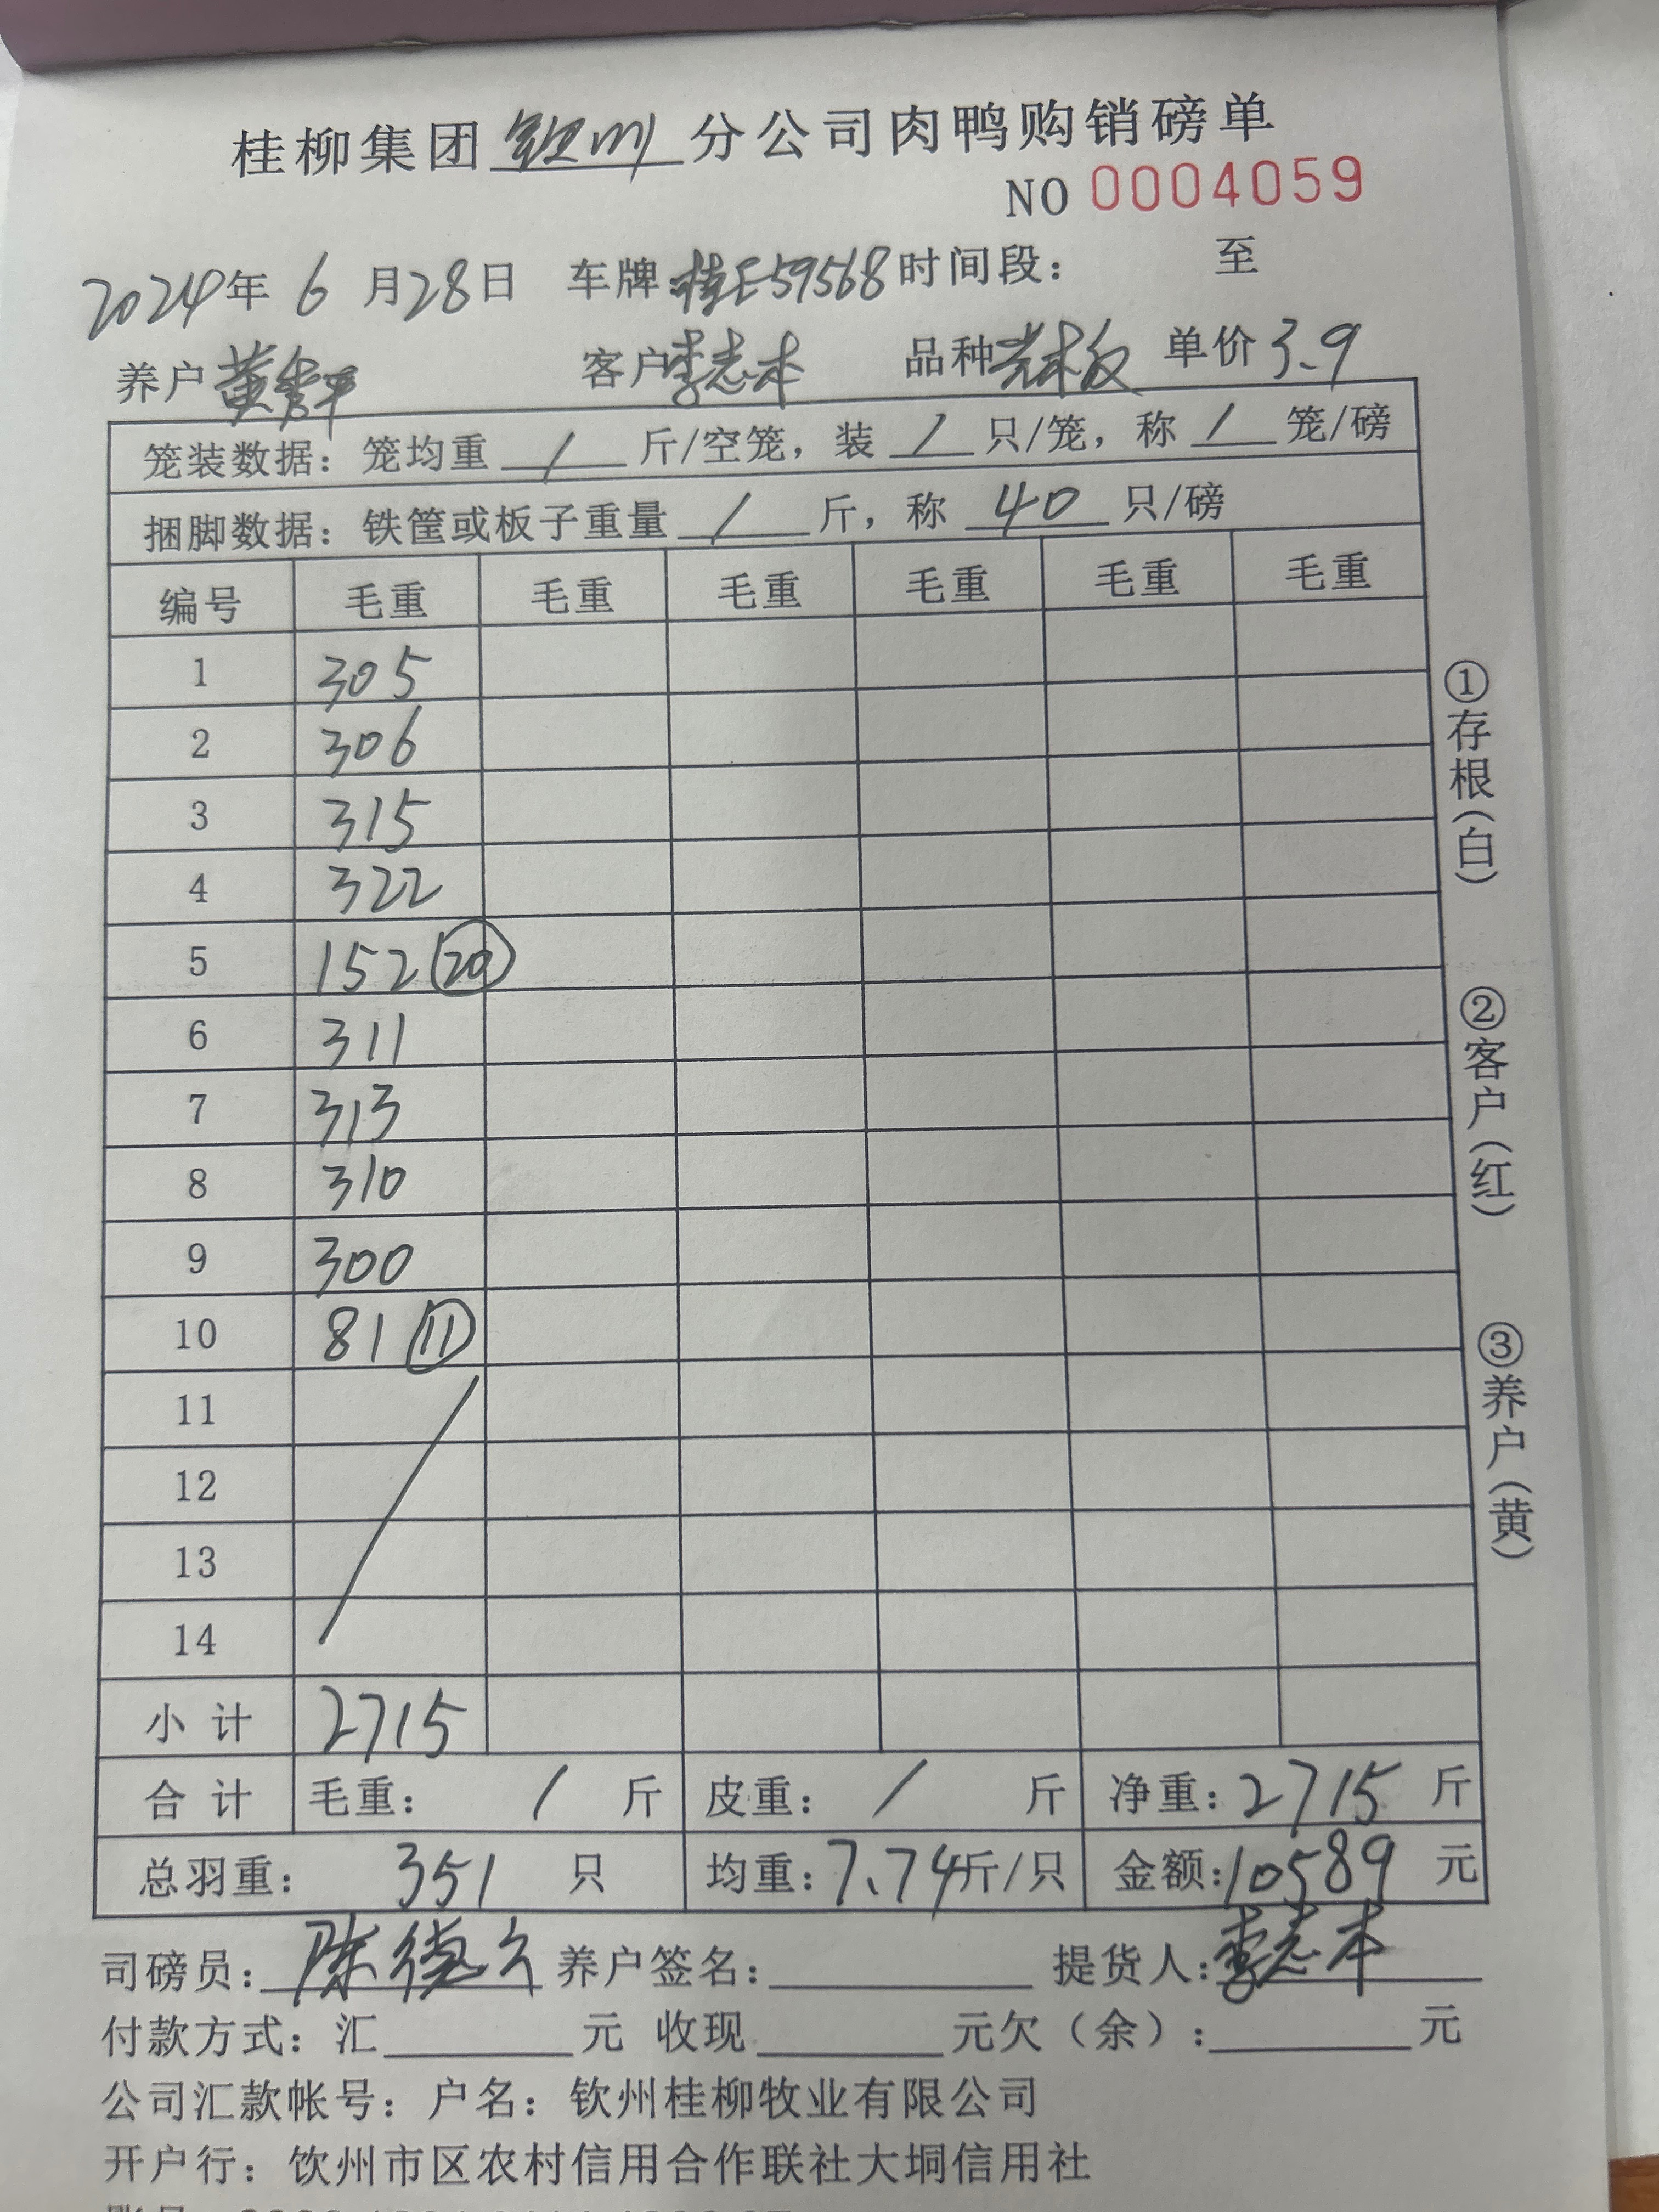 桂柳集团钦州分公司肉鸭购销磅单
NO 0004059
2024年6月28日 车牌:桂E59568时间段: 至
养户黄秀平 客户李志本 品种 单价3.9
笼装数据:笼均重 / 斤/空笼,装 / 只/笼,称 / 笼/磅
捆脚数据:铁筐或板子重量 / 斤,称 40 只/磅
编号 毛重 毛重 毛重 毛重 毛重 毛重
1 305
2 306
3 315
4 322
5 152 ⑳
6 311
7 313
8 310
9 300
10 81 ⑪
11
12
13
14
小计 2715
合计 毛重: / 斤 皮重: / 斤 净重:2715 斤
总羽重: 351 只 均重:7.74斤/只 金额:10589 元
司磅员:陈德 养户签名: 提货人:李志本
付款方式:汇 元 收现 元欠(余): 元
公司汇款帐号:户名:钦州桂柳牧业有限公司
开户行:饮州市区农村信用合作联社大垌信用社
①存根(白)
②客户(红)
③养户(黄)